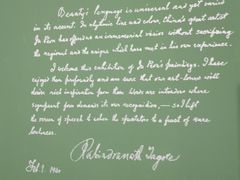 Beauty's language is universal and yet varied
in its accent. In rhythmic line and colour, China's great artist
Ju Péon has offered an immemorial vision without sacrificing
the regional and the unique which have met in his own experience.
I welcome this exhibition of Ju Péon's paintings. I have
enjoyed them profoundly and am sure that our art-lovers will
derive rich inspiration from them. Words are intruders where
significant form demands its own recognition, — so I lift
the screen of speech to usher the spectator to a feast of rare
loveliness.
Rabindranath Tagore
Feb. 1940